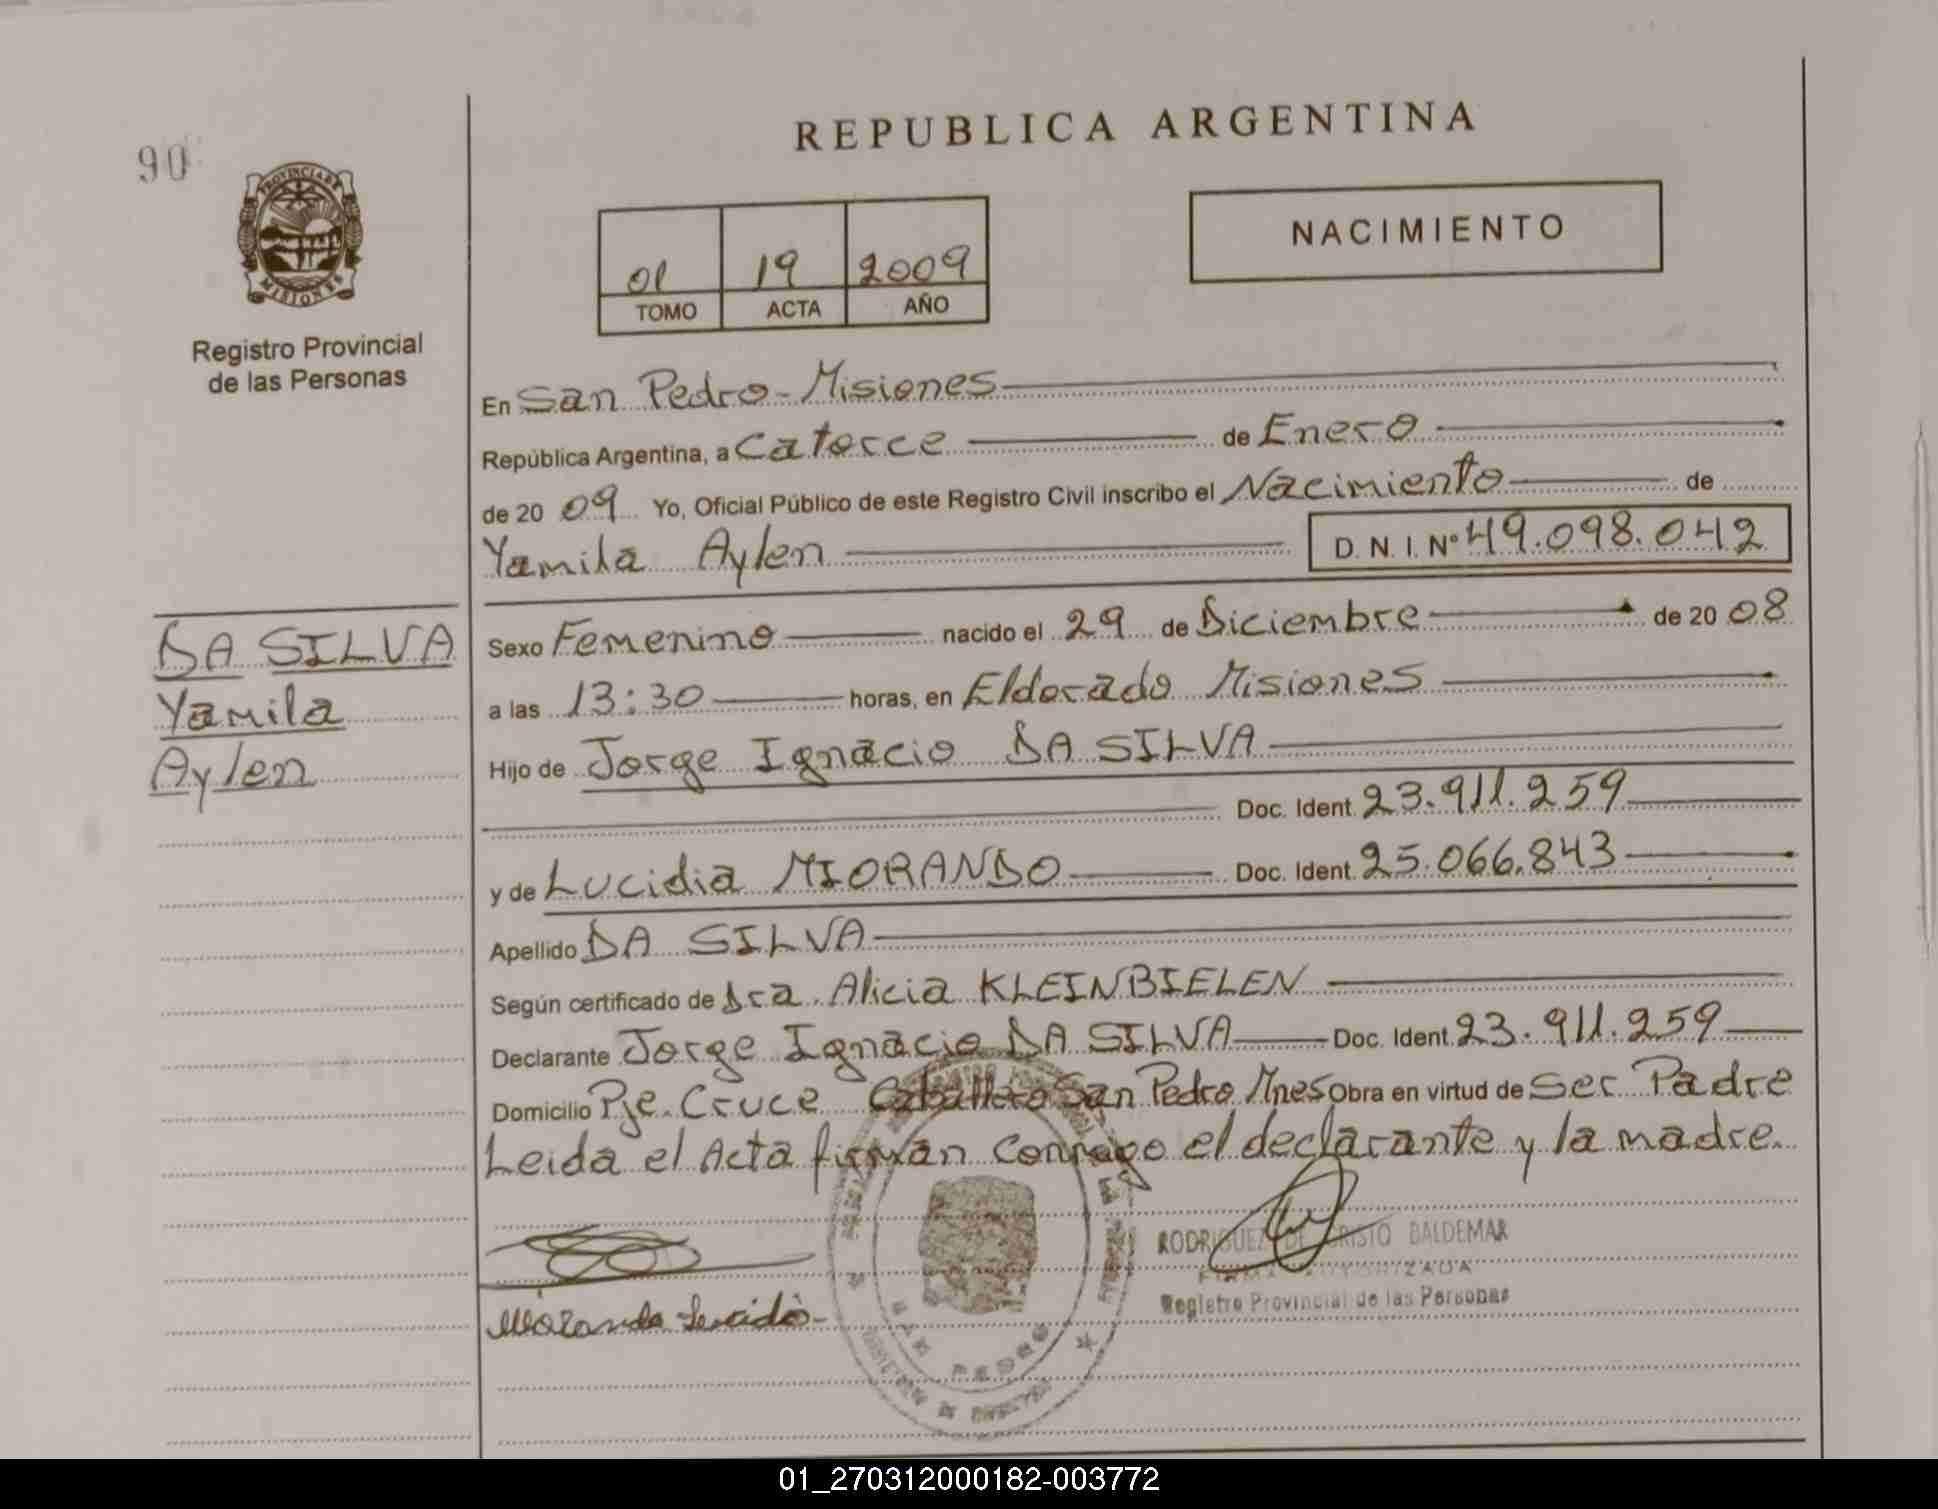 REPUBLICA ARGENTINA
90
PROVINCIA DE
MISIONES
Registro Provincial
de las Personas
NACIMIENTO
01 19 2009
TOMO ACTA AÑO
En San Pedro - Misiones
República Argentina, a Catorce de Enero
de 20 09 Yo, Oficial Público de este Registro Civil inscribo el Nacimiento de
Yamila Aylen D. N. I. Nº 49.098.042
DA SILVA
Yamila
Aylen
Sexo Femenino nacido el 29 de Diciembre de 20 08
a las 13:30 horas, en Eldorado Misiones
Hijo de Jorge Ignacio DA SILVA
Doc. Ident. 23.911.259
y de Lucidia MIORANDO Doc. Ident. 25.066.843
Apellido DA SILVA
Según certificado de Dra. Alicia KLEINBIELEN
Declarante Jorge Ignacio DA SILVA Doc. Ident. 23.911.259
Domicilio Pje. Cruce Caballero San Pedro Mnes Obra en virtud de Ser Padre
Leida el Acta firman conmigo el declarante y la madre.
RODRIGUEZ DE CRISTO BALDEMAR
FIRMA AUTORIZADA
Registro Provincial de las Personas
SAN PEDRO
01_270312000182-003772